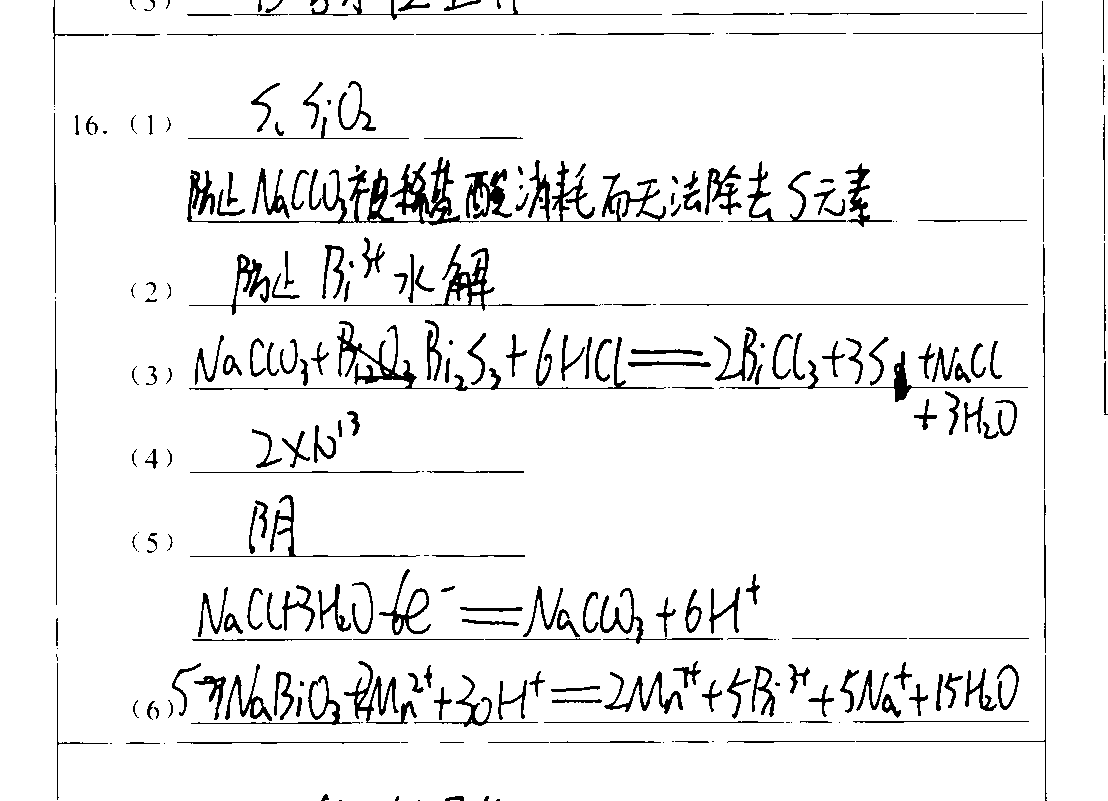 (3)
16.(1) S、SiO₂
防止NaClO₃被稀盐酸消耗而无法除去S元素
(2) 防止 Bi³⁺水解
(3) NaClO₃+Bi₂S₃+6HCl═2BiCl₃+3S↓+NaCl
+3H₂O
(4) 2×10¹³
(5) 阴
NaCl+3H₂O-6e⁻═NaClO₃+6H⁺
(6) 5NaBiO₃+2Mn²⁺+30H⁺═2Mn⁷⁺+5Bi³⁺+5Na⁺+15H₂O